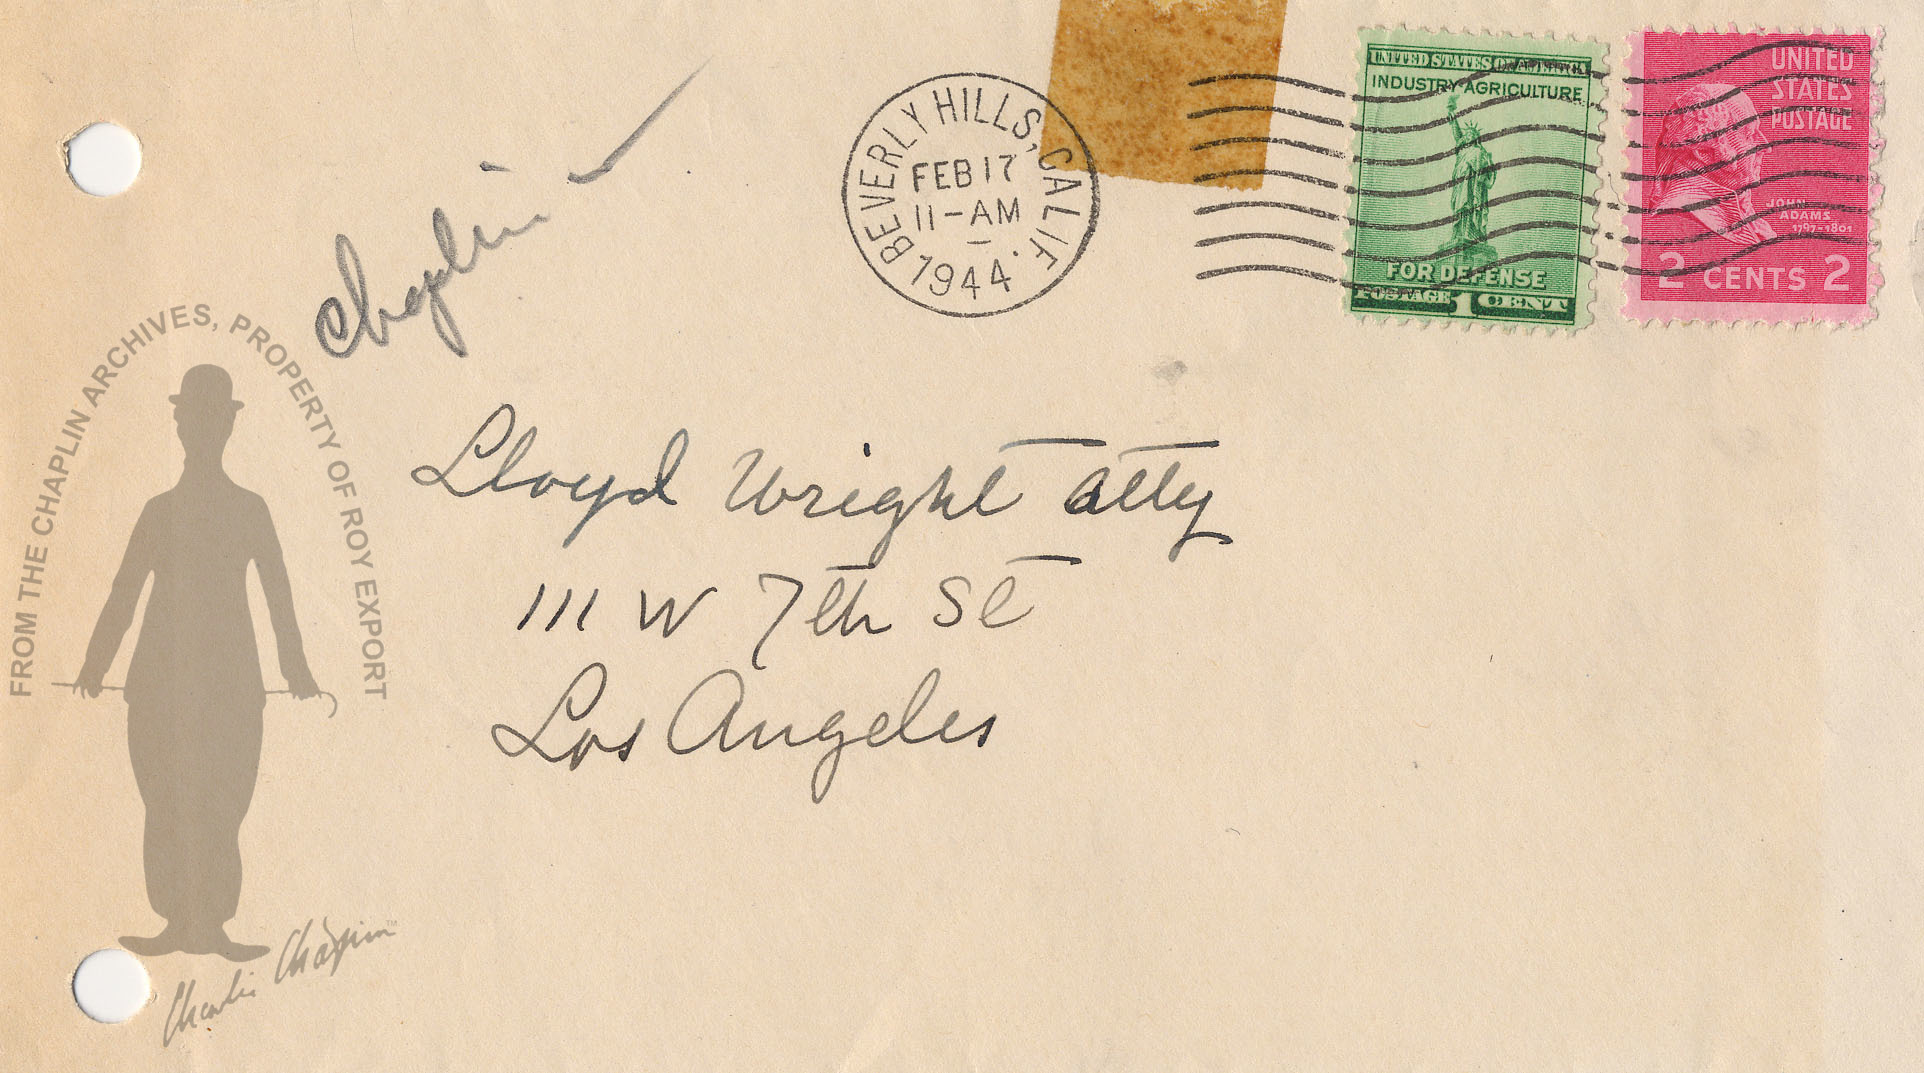 Chaplin
BEVERLY HILLS, CALIF.
FEB 17
11-AM
1944
UNITED STATES OF AMERICA
INDUSTRY-AGRICULTURE
FOR DEFENSE
POSTAGE 1 CENT
UNITED
STATES
POSTAGE
JOHN
ADAMS
1797-1801
2 CENTS 2
Lloyd Wright atty
111 W 7th St
Los Angeles
FROM THE CHAPLIN ARCHIVES, PROPERTY OF ROY EXPORT
Charlie Chaplin™